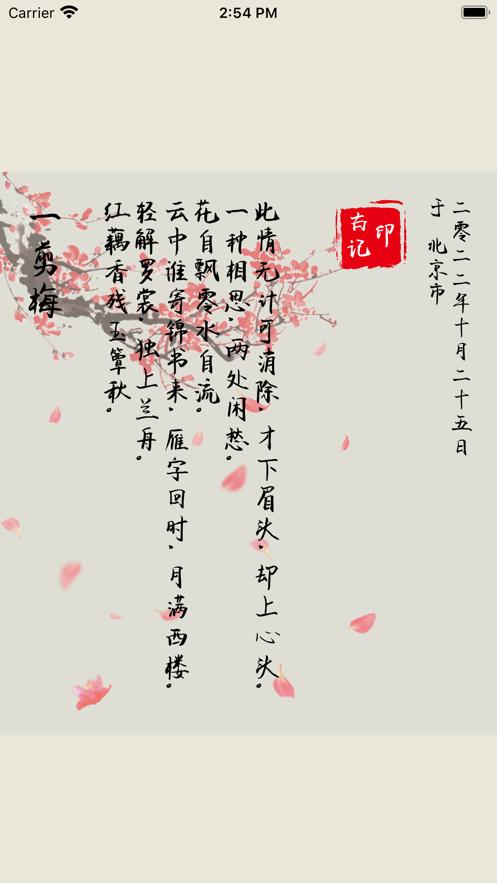 Carrier
2:54 PM
一剪梅
红藕香残玉簟秋。
轻解罗裳,独上兰舟。
云中谁寄锦书来,雁字回时,月满西楼。
花自飘零水自流。
一种相思,两处闲愁。
此情无计可消除,才下眉头,却上心头。
右记
印
于 北京市
二零二二年十月二十五日